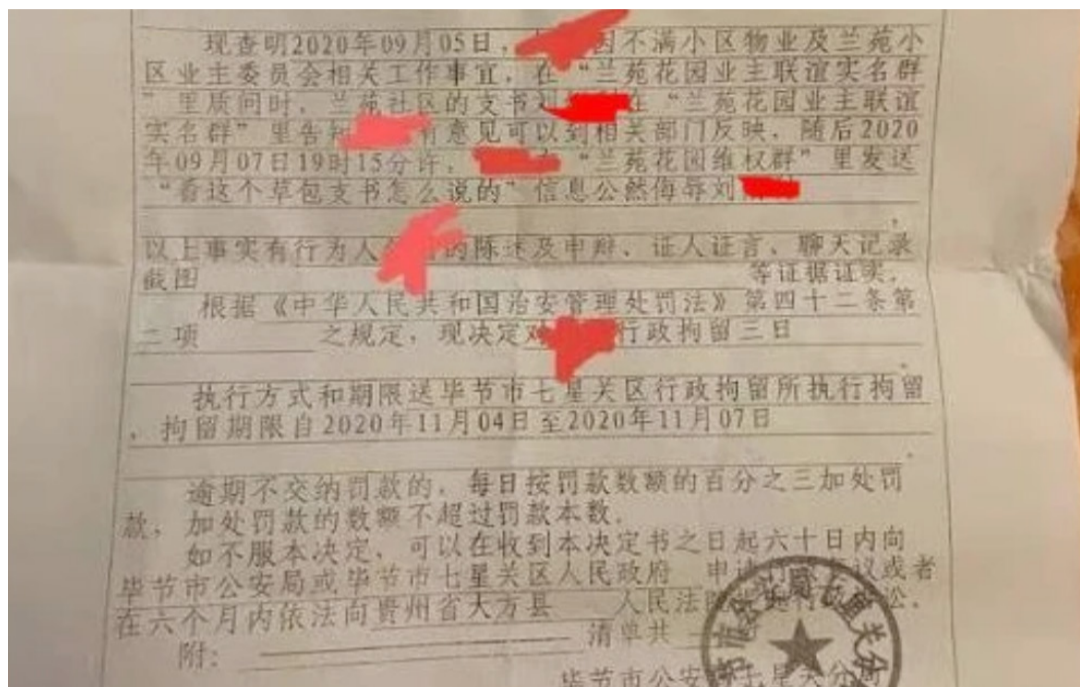 现查明2020年09月05日，因不满小区物业及兰苑小
区业主委员会相关工作事宜，在“兰苑花园业主联谊实名群
”里质问时，兰苑社区的支书刘在“兰苑花园业主联谊
实名群”里告知有意见可以到相关部门反映，随后2020
年09月07日19时15分许，在“兰苑花园维权群”里发送
“看这个草包支书怎么说的”信息公然侮辱刘
，
以上事实有行为人的陈述及申辩、证人证言、聊天记录
截图 等证据证实。
根据《中华人民共和国治安管理处罚法》第四十二条第
二项 之规定，现决定对行政拘留三日
。
执行方式和期限送毕节市七星关区行政拘留所执行拘留
，拘留期限自2020年11月04日至2020年11月07日
。
逾期不交纳罚款的，每日按罚款数额的百分之三加处罚
款，加处罚款的数额不超过罚款本数。
如不服本决定，可以在收到本决定书之日起六十日内向
毕节市公安局或毕节市七星关区人民政府 申请行政复议或者
在六个月内依法向贵州省大方县 人民法院提起行政诉讼。
附： 清单共
毕节市公安局七星关分局